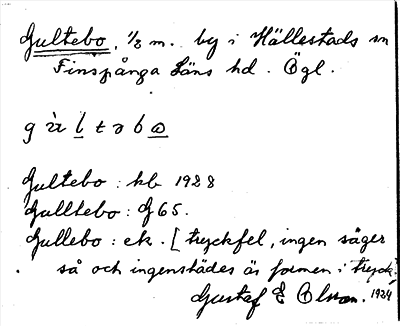 Gultebo, 1/8 m. by i Hällestads sn
Finspånga Läns hd. Ögl.
Gultebo: kb 1928
Gulltebo: G 65.
Gullebo: ek. [tryckfel, ingen säger
så och ingenstädes är formen i tryck.]
Gustaf E Olsson. 1924